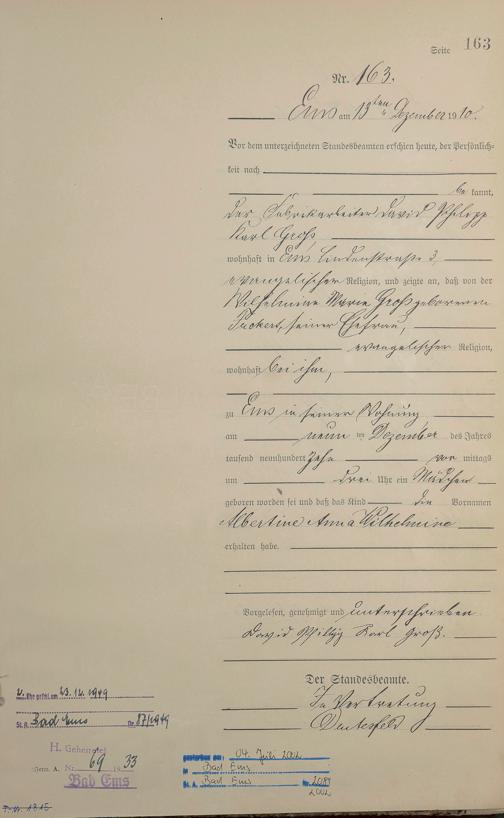 Seite 163
Nr. 163.
Ems am 13ten Dezember 1910.
Vor dem unterzeichneten Standesbeamten erschien heute, der Persönlich-
keit nach
be kannt,
der Fabrikarbeiter David Philipp
Karl Groß,
wohnhaft in Ems Lindenstraße 3,
evangelischer Religion, und zeigte an, daß von der
Wilhelmine Marie Groß geborenen
seiner Ehefrau,
evangelischer Religion,
wohnhaft bei ihm,
zu Ems in seiner Wohnung
am neun ten Dezember des Jahres
tausend neunhundert zehn vor mittags
um drei Uhr ein Mädchen
geboren worden sei und daß das Kind die Vornamen
Albertine Anna Wilhelmine
erhalten habe.
Vorgelesen, genehmigt und unterschrieben
David Philipp Karl Groß.
Der Standesbeamte.
In Vertretung
2. Ehe geschl. am 23.12.1949
St. A. Bad Ems Nr. 87/1949
H. Geheiratet
Gem. A. Nr. 69 1933
Bad Ems
gestorben am: 04. Juli 2002
in Bad Ems
St. A. Bad Ems Nr.
2002